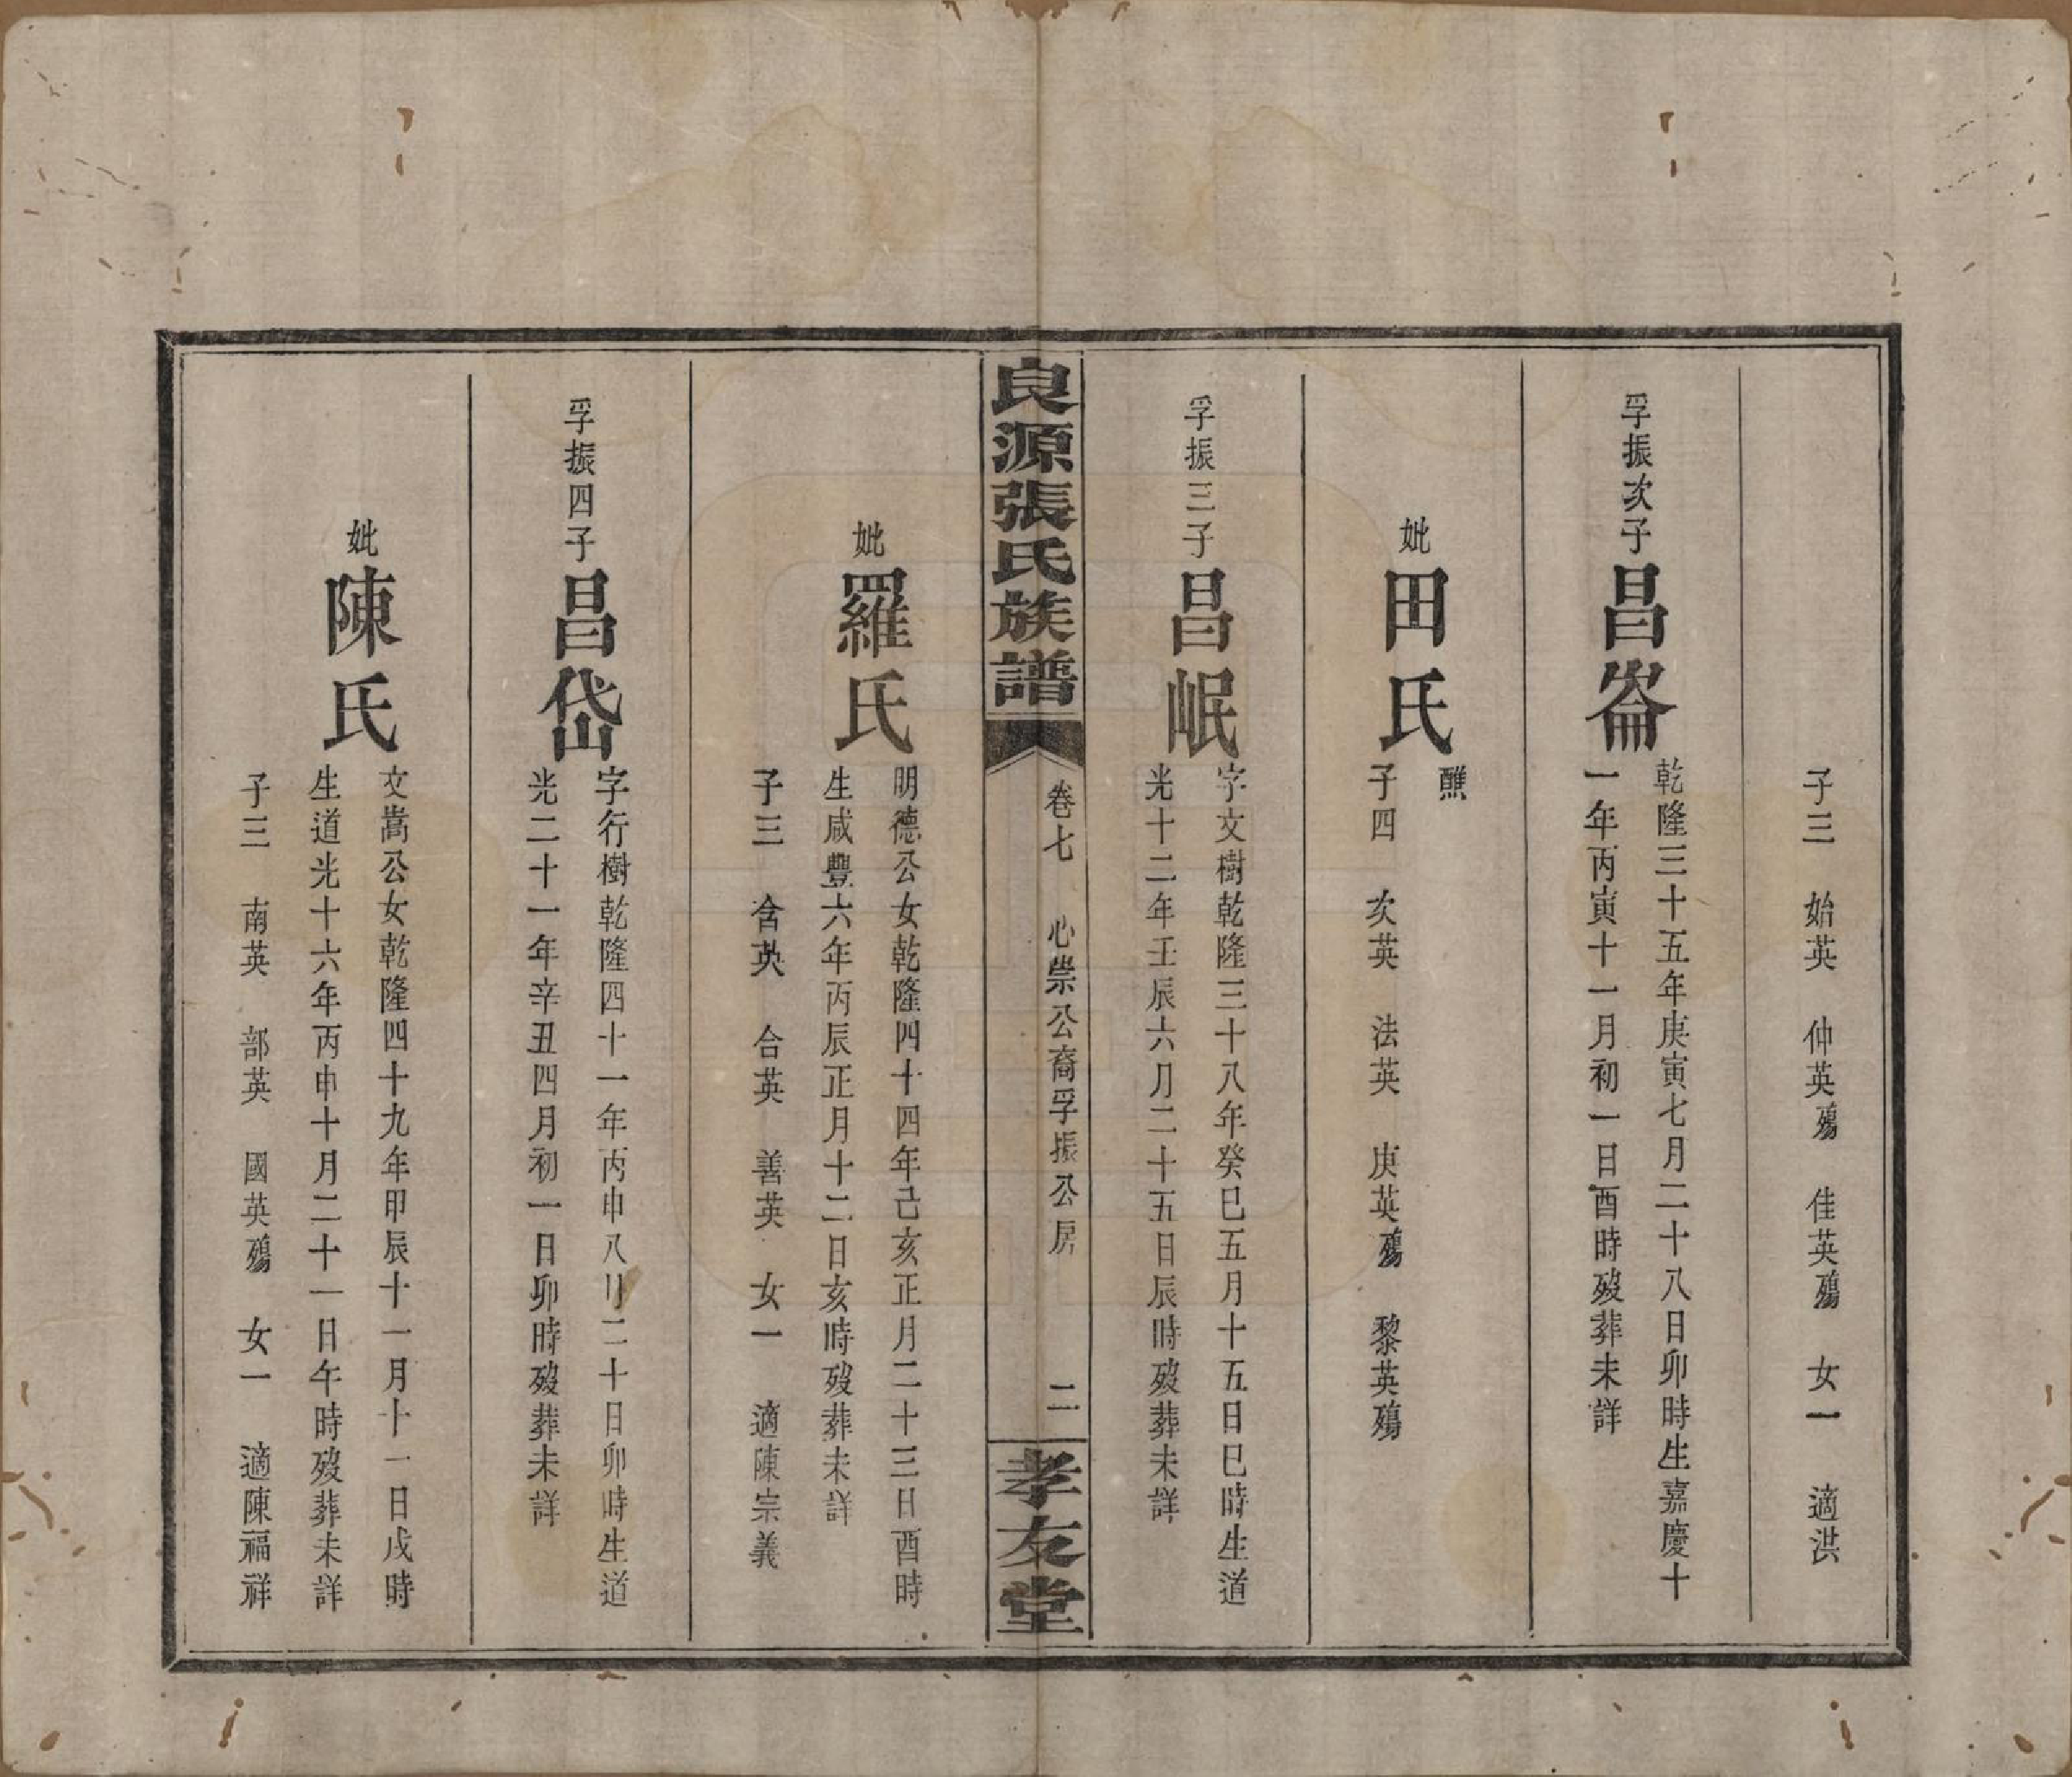 子三 始英 仲英殤 佳英殤 女一 適洪
孚振次子昌崙
乾隆三十五年庚寅七月二十八日卯時生嘉慶十
一年丙寅十一月初一日酉時歿葬未詳
妣田氏
醮
子四 次英 法英 庚英殤 黎英殤
孚振三子昌岷
字文樹乾隆三十八年癸巳五月十五日巳時生道
光十二年壬辰六月二十五日辰時歿葬未詳
良源張氏族譜
卷七 心崇公裔孚振公房 二
孝友堂
妣羅氏
明德公女乾隆四十四年己亥正月二十三日酉時
生咸豐六年丙辰正月十二日亥時歿葬未詳
子三 含英 合英 善英 女一 適陳宗義
孚振四子昌岱
字行樹乾隆四十一年丙申八月二十日卯時生道
光二十一年辛丑四月初一日卯時歿葬未詳
妣陳氏
文嵩公女乾隆四十九年甲辰十一月十一日戌時
生道光十六年丙申十月二十一日午時歿葬未詳
子三 南英 部英 國英殤 女一 適陳福祥